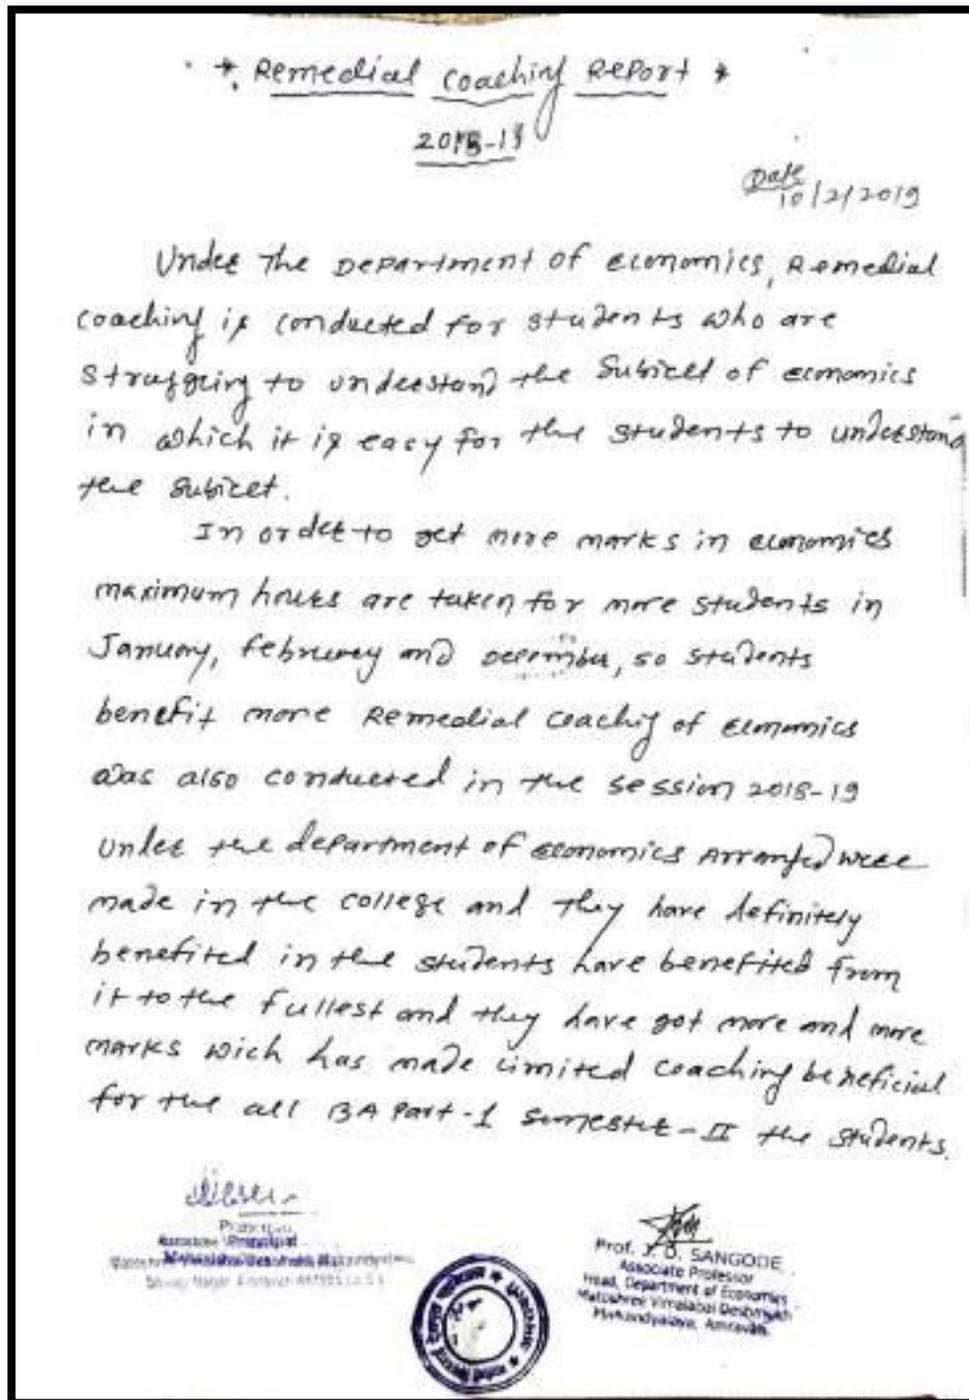 * Remedial Coaching Report *
2018-19
Date
10/2/2019
Under the Department of economics, Remedial
coaching is conducted for students who are
struggeing to understand the subicet of economics
in which it is easy for the students to understand
the subicet.
In order to get more marks in economics
maximum hours are taken for more students in
January, februrey and december, so students
benefit more Remedial coachig of economics
was also conducted in the session 2018-19
under the department of economics Arranged were
made in the college and they have definitely
benefited in the students have benefited from
it to the fullest and they have got more and more
marks wich has made limited coaching beneficial
for the all BA Part-I semester-II the students.
Principal
Prof. J. D. SANGODE
Associate Professor
Head, Department of Economics
Matoshree Vimalabai Deshmukh
Mahavidyalaya, Amravati.